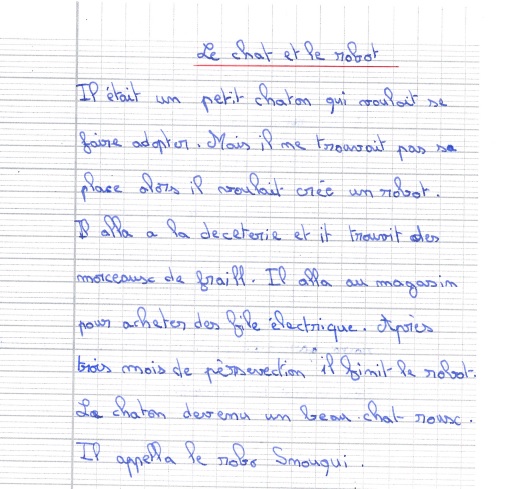 Le chat et le robot
Il était un petit chaton qui voulait se
faire adopter. Mais il ne trouvait pas sa
place alors il voulait crée un robot.
Il alla a la deceterie et it trouvit des
morceaux de fraill. Il alla au magasin
pour acheter des file électrique. Après
trois mois de pèrservection il finit le robot.
Le chaton devenu un beau chat roux.
Il appella le robo Smouqui.